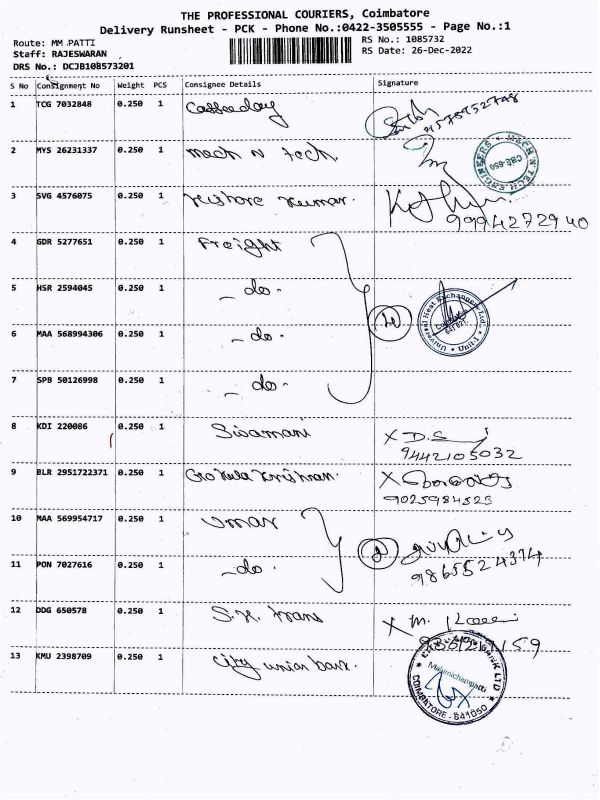 THE PROFESSIONAL COURIERS, Coimbatore
Delivery Runsheet - PCK - Phone No.:0422-3505555 - Page No.:1
Route: MM PATTI
RS No.: 1085732
Staff: RAJESWARAN
RS Date: 26-Dec-2022
DRS No.: DCJB108573201
S No Consignment No Weight PCS Consignee Details Signature
1 TCG 7032848 0.250 1
2 MYS 26231337 0.250 1 mech n tech
MECH N TECH ENGINEERS
3 SVG 4576075 0.250 1 Kishore Kumar.
9994272940
4 GDR 5277651 0.250 1 Freight
5 HSR 2594045 0.250 1 - do -
Universal Heat Exchangers Ltd., Unit-I
6 MAA 568994306 0.250 1 - do -
7 SPB 50126998 0.250 1 - do -
8 KDI 220086 0.250 1 Sivamani X D.S
9442105032
9 BLR 2951722371 0.250 1 Gokula Krishnan. X
9025984523
10 MAA 569954717 0.250 1 Umar
11 PON 7027616 0.250 1 - do -
9865524374
12 DDG 650578 0.250 1 S.K. trans X M.
13 KMU 2398709 0.250 1 City union bank.
CITY UNION BANK LTD
Malumichampatti
COIMBATORE - 641050